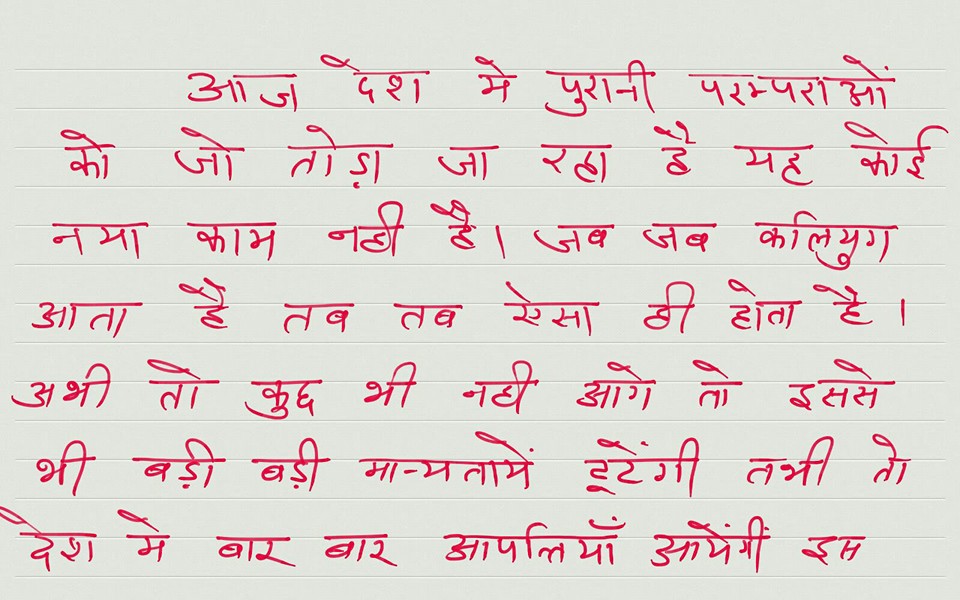 आज देश मे पुरानी परम्पराओं
को जो तोड़ा जा रहा है यह कोई
नया काम नही है। जब जब कलियुग
आता है तब तब ऐसा ही होता है।
अभी तो कुछ भी नही आगे तो इससे
भी बड़ी बड़ी मान्यतायें टूटेंगी तभी तो
देश मे बार बार आपत्तियाँ आयेंगीं इस